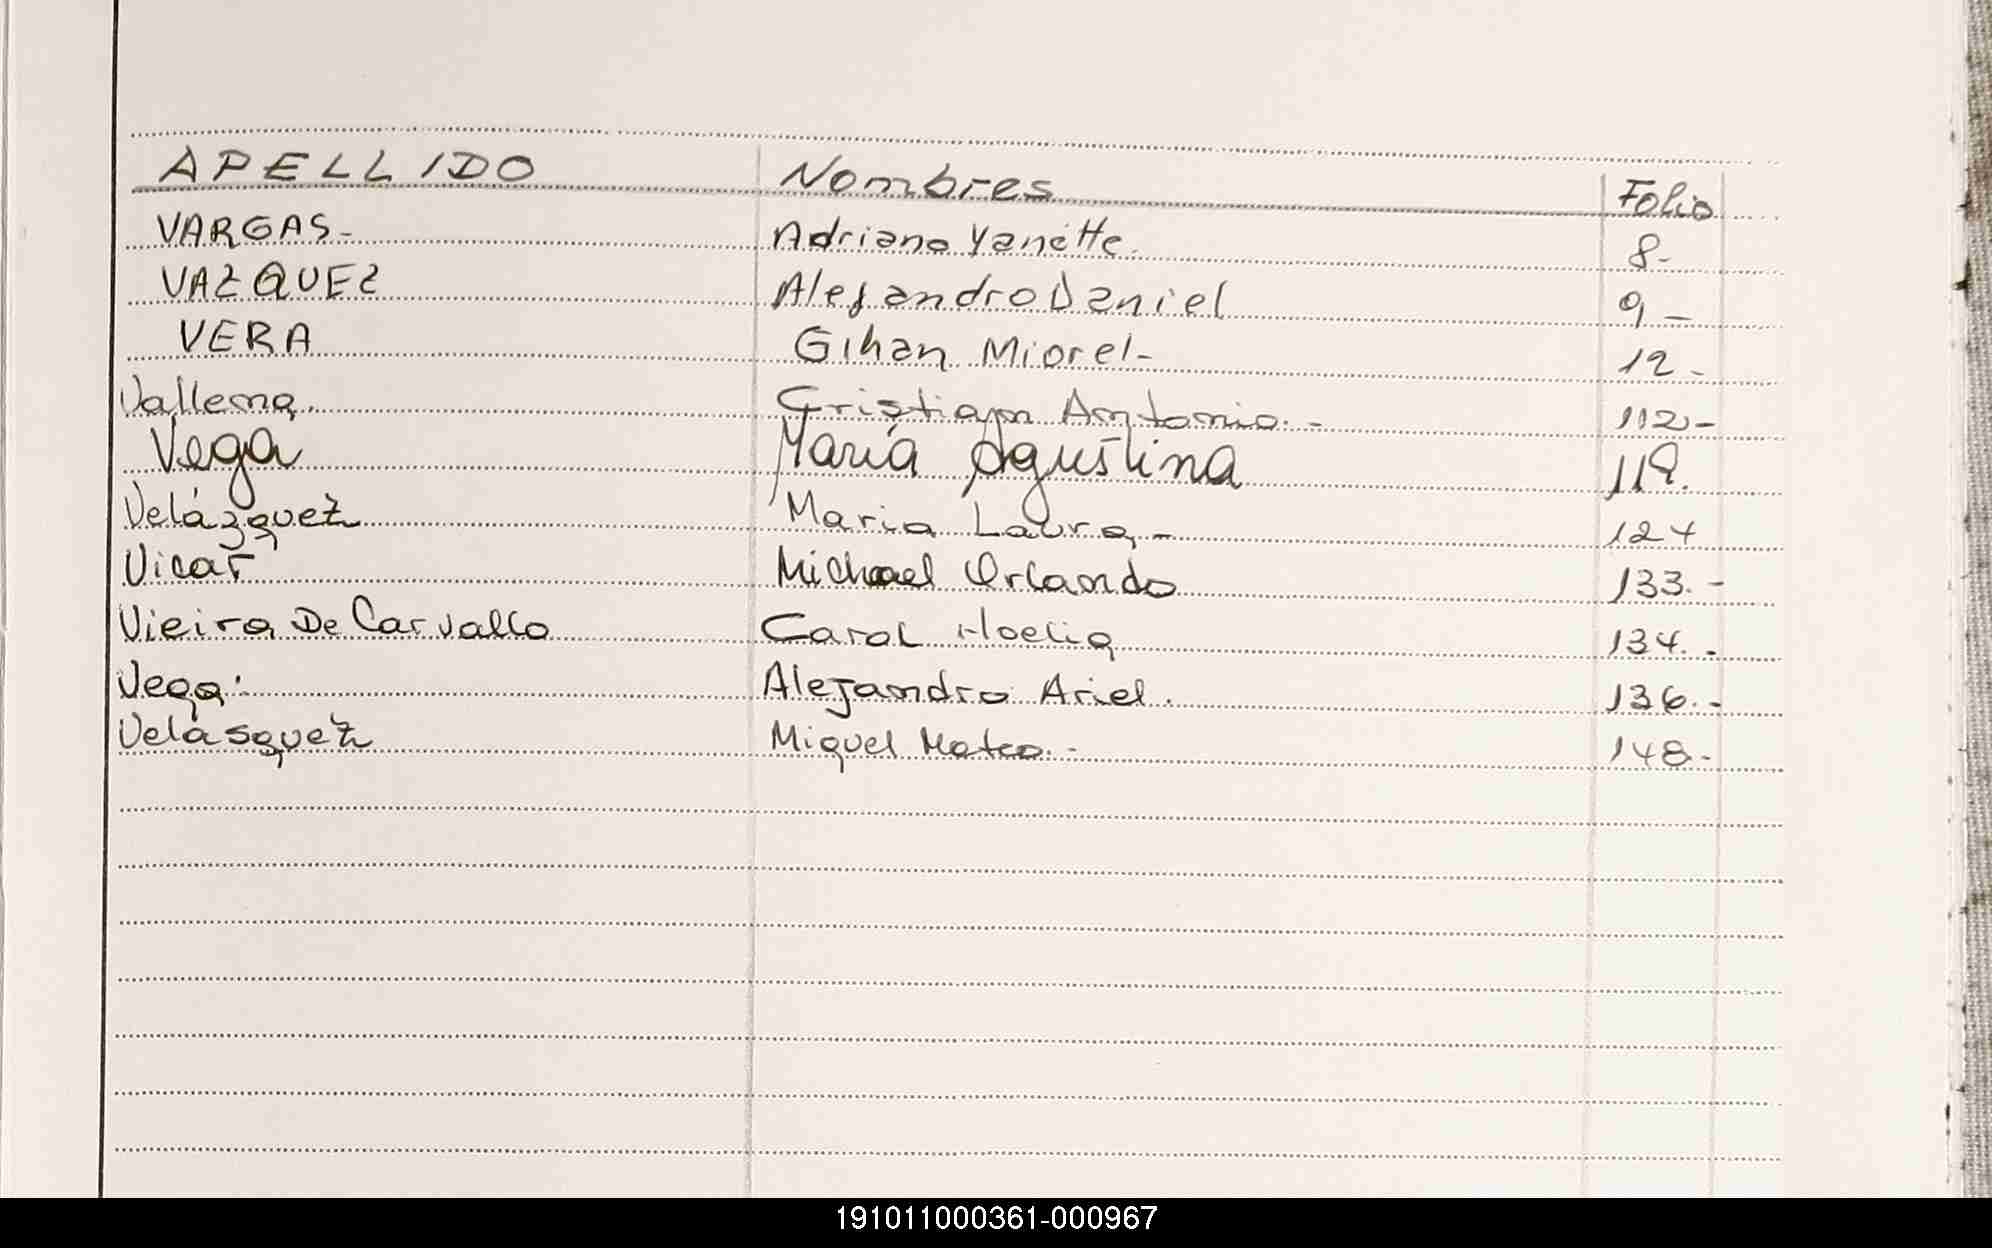 APELLIDO Nombres Folio
VARGAS- Adriana Yanette. 8-
VAZQUEZ Alejandro Daniel 9-
VERA Gihan Miorel- 12-
Vallema. Cristian Antonio.- 112-
Vega María Agustina 119.
Velázquez Maria Laura,- 124
Vicar Michael Orlando 133.-
Vieira De Carvallo Carol 134.-
Vega. Alejandro Ariel. 136.-
Velásquez Miguel Mateo.- 148-
191011000361-000967